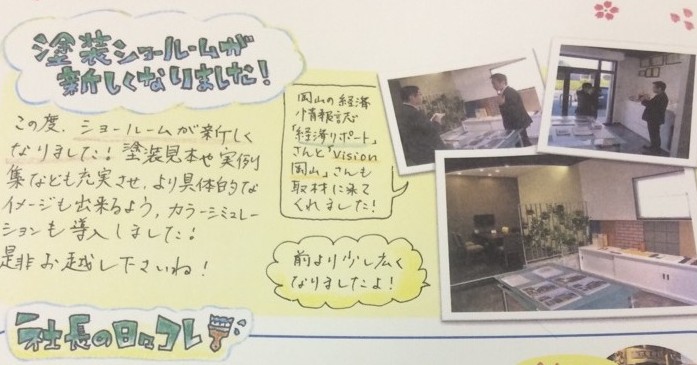 塗装ショールームが
新しくなりました!
この度、ショールームが新しく
なりました!塗装見本や実例
集なども充実させ、より具体的な
イメージも出来るよう、カラーシミュレー
ションも導入しました!
是非お越し下さいね!
岡山の経済
情報誌
「経済リポート」
さんと「Vision
岡山」さんも
取材に来て
くれました!
前より少し広く
なりましたよ!
社長の日々コレ